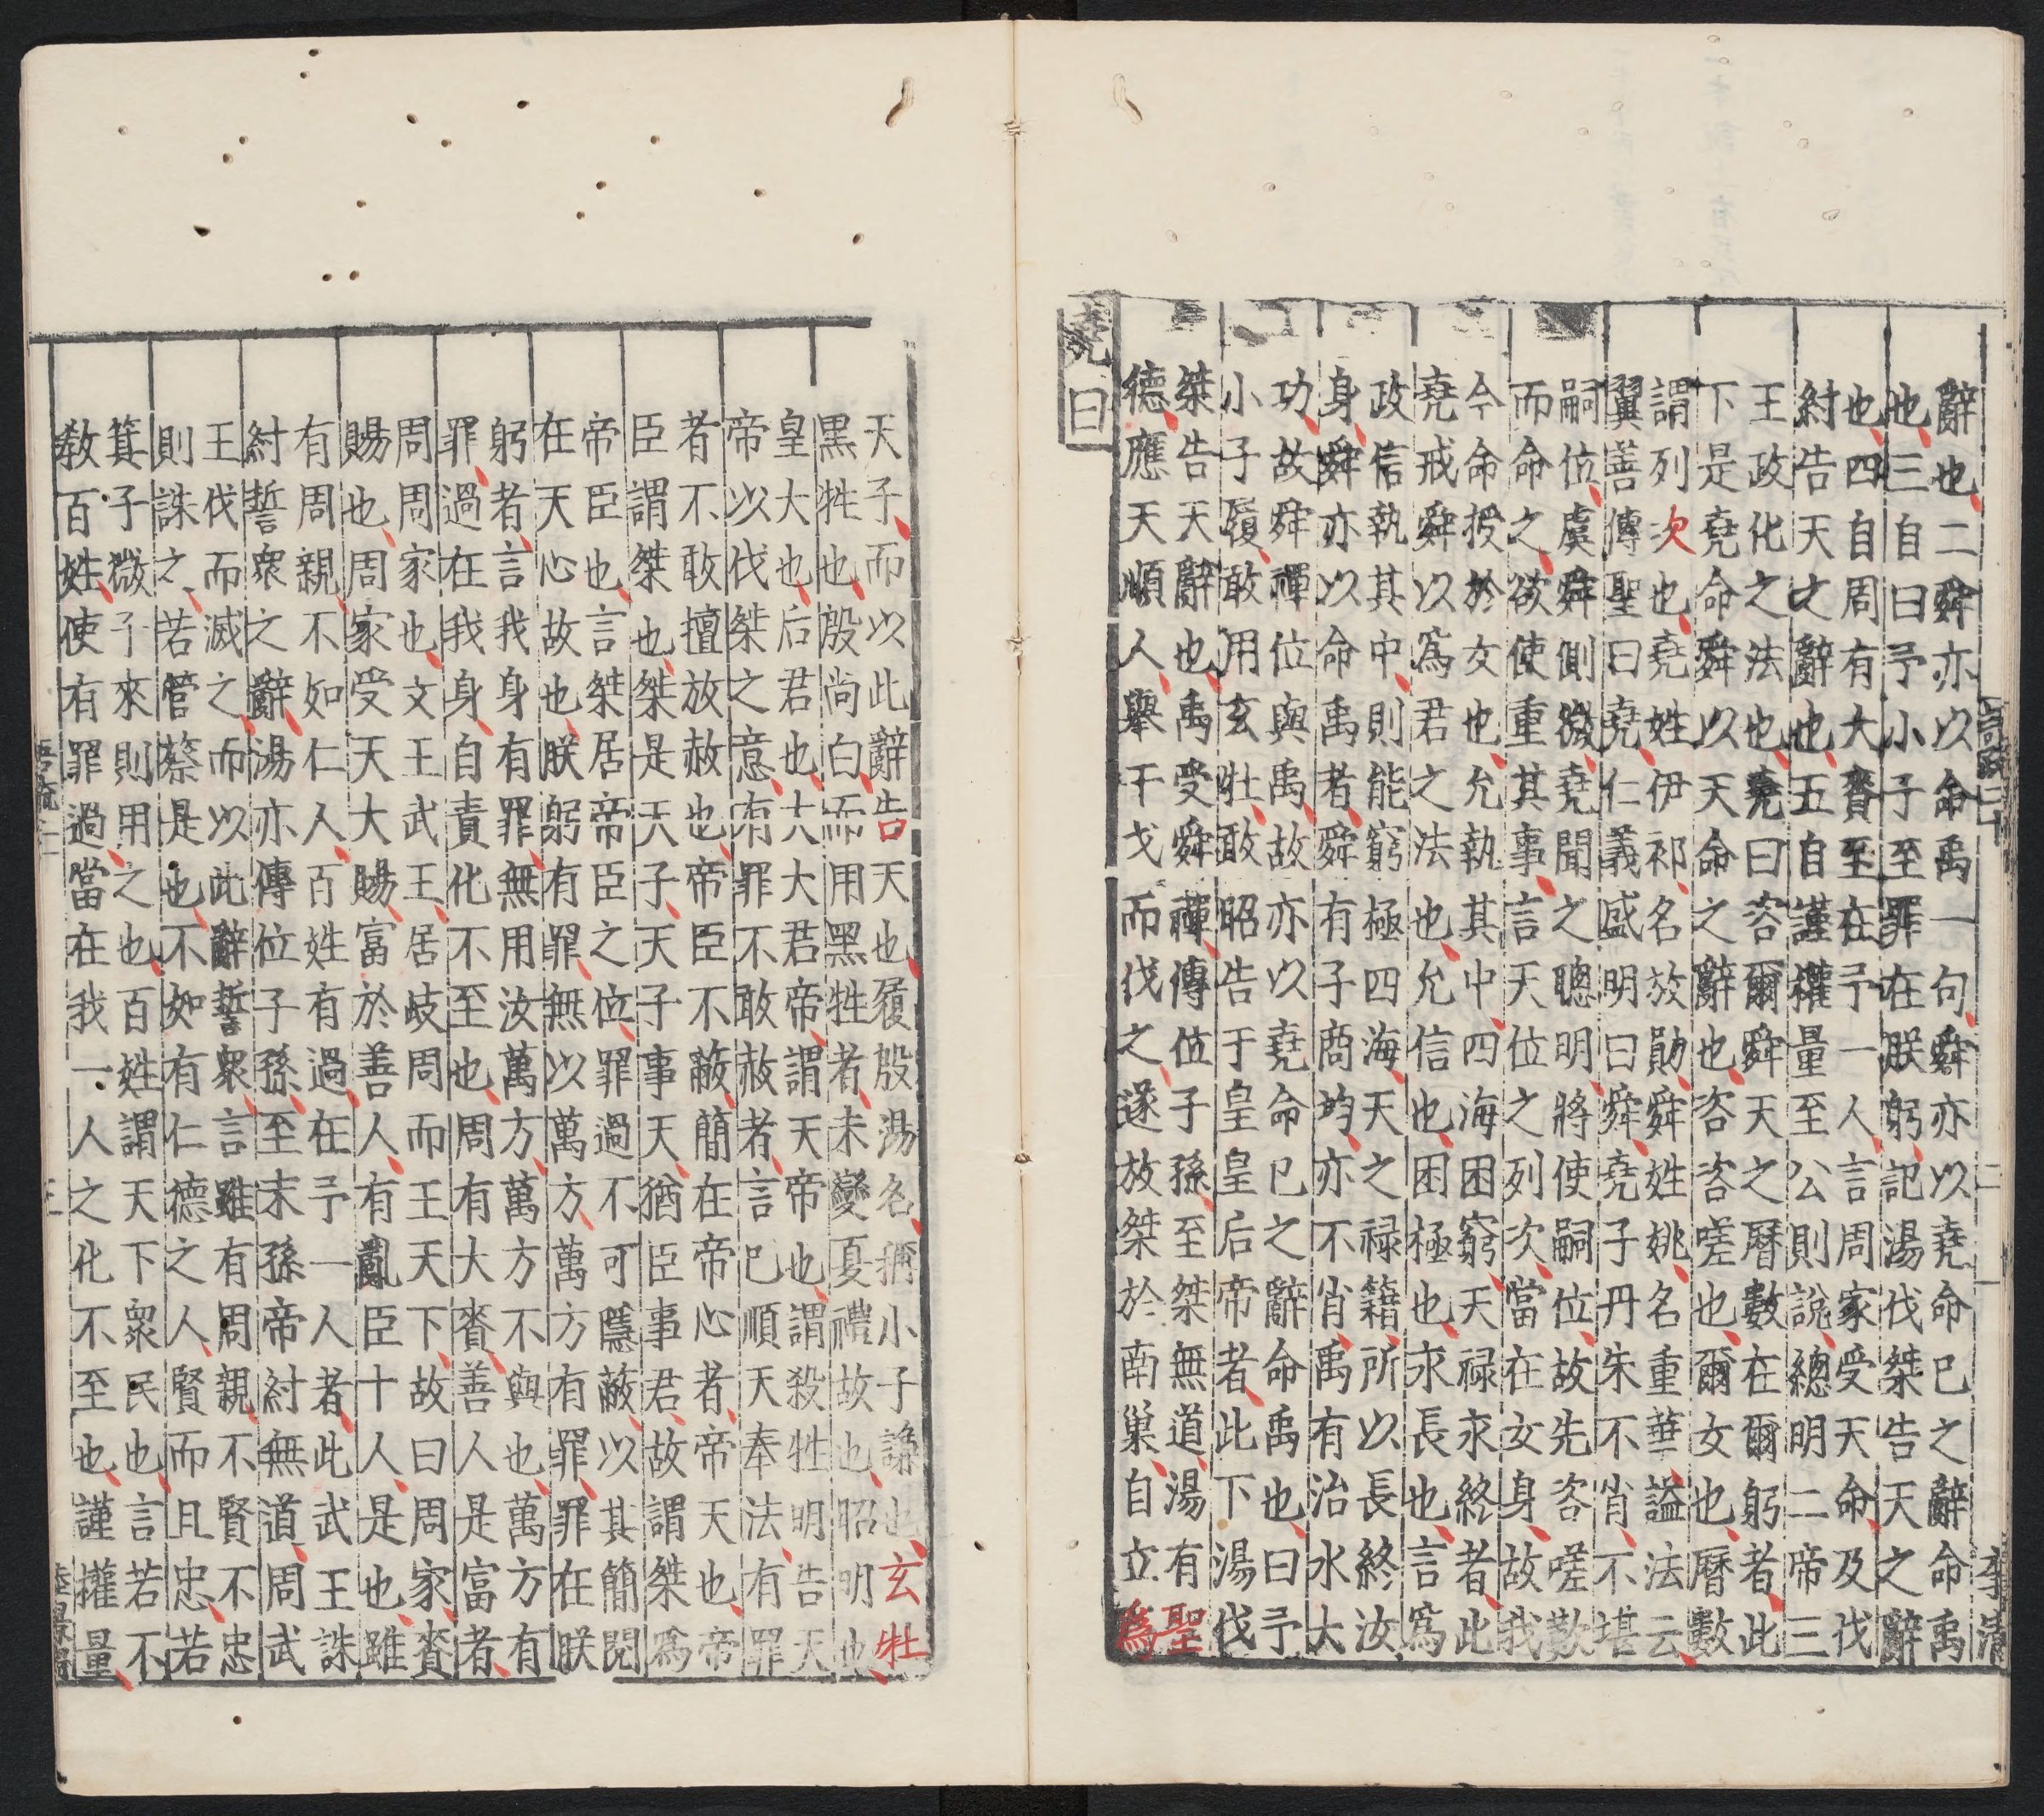 辭也二舜亦以命禹一句舜亦以堯命巳之辭命禹
也三自曰予小子至罪在朕躬記湯伐桀告天之辭
也四自周有大賚至在予一人言周家受天命及伐
紂告天之辭也五自謹權量至公則說總明二帝三
王政化之法也堯曰咨爾舜天之曆數在爾躬者此
下是堯命舜以天命之辭也咨咨嗟也爾女也曆數
謂列次也堯姓伊祁名放勛舜姓姚名重華謚法云
翼善傳聖曰堯仁義盛明曰舜堯子丹朱不肖不堪
嗣位虞舜側微堯聞之聰明將使嗣位故先咨嗟歎
而命之欲使重其事言天位之列次當在女身故我
今命授於女也允執其中四海困窮天禄永終者此
堯戒舜以為君之法也允信也困極也永長也言為
政信執其中則能窮極四海天之禄籍所以長終汝
身舜亦以命禹者舜有子商均亦不肖禹有治水大
功故舜禪位與禹故亦以堯命巳之辭命禹也曰予
小子履敢用玄牡敢昭告于皇皇后帝者此下湯伐
桀告天辭也禹受舜禪傳位子孫至桀無道湯有聖
德應天順人舉干戈而伐之遂放桀於南巢自立為
堯曰
李清
天子而以此辭告天也履殷湯名稱小子謙也玄牡
黑牲也殷尚白而用黑牲者未變夏禮故也昭明也
皇大也后君也大大君帝謂天帝也謂殺牲明告天
帝以伐桀之意有罪不敢赦者言巳順天奉法有罪
者不敢擅放赦也帝臣不蔽簡在帝心者帝天也帝
臣謂桀也桀是天子天子事天猶臣事君故謂桀爲
帝臣也言桀居帝臣之位罪過不可隱蔽以其簡閱
在天心故也朕躬有罪無以萬方萬方有罪罪在朕
躬者言我身有罪無用汝萬方萬方不與也萬方有
罪過在我身自責化不至也周有大賚善人是富者
周周家也文王武王居岐周而王天下故曰周家賚
賜也周家受天大賜富於善人有亂臣十人是也雖
有周親不如仁人百姓有過在予一人者此武王誅
紂誓眾之辭湯亦傳位子孫至末孫帝紂無道周武
王伐而滅之而以此辭誓眾言雖有周親不賢不忠
則誅之若管蔡是也不如有仁德之人賢而且忠若
箕子微子來則用之也百姓謂天下眾民也言若不
教百姓使有罪過當在我一人之化不至也謹權量